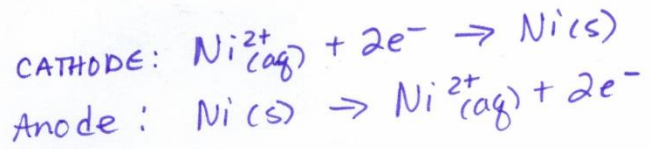 CATHODE: Ni²⁺(aq) + 2e⁻ → Ni(s)
Anode: Ni(s) → Ni²⁺(aq) + 2e⁻